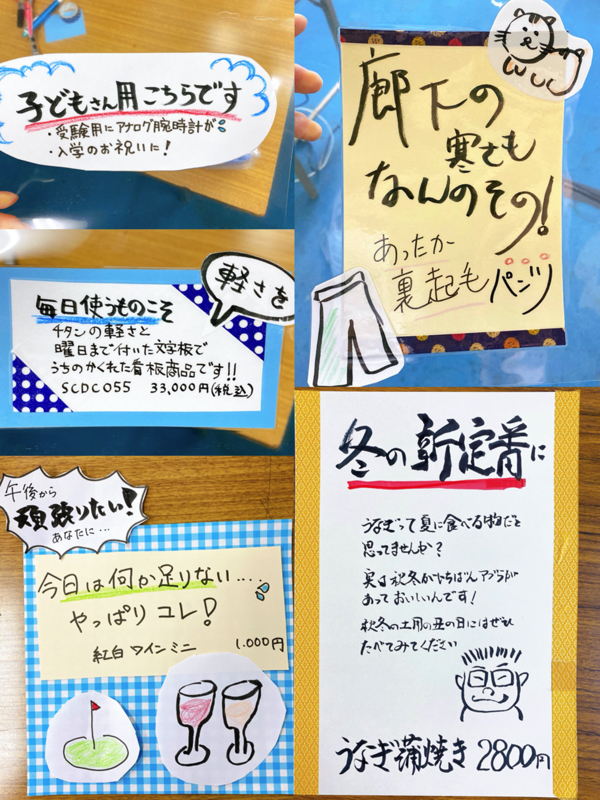 子どもさん用こちらです
・受験用にアナログ腕時計が
・入学のお祝いに!
廊下の
寒さも
なんのその!
あったか
裏起毛パンツ
軽さを
毎日使うものこそ
チタンの軽さと
曜日まで付いた文字板で
うちのかくれた看板商品です!!
SCDC055 33,000円(税込)
午後から
頑張りたい!
あなたに…
今日は何か足りない….
やっぱりコレ!
紅白ワインミニ 1.000円
冬の新定番に
うなぎって夏に食べる物だと
思ってませんか?
実は秋冬がいちばんアブラが
あっておいしいんです!
秋冬の土用の丑の日にはぜひ
たべてみてください
うなぎ蒲焼き 2800円